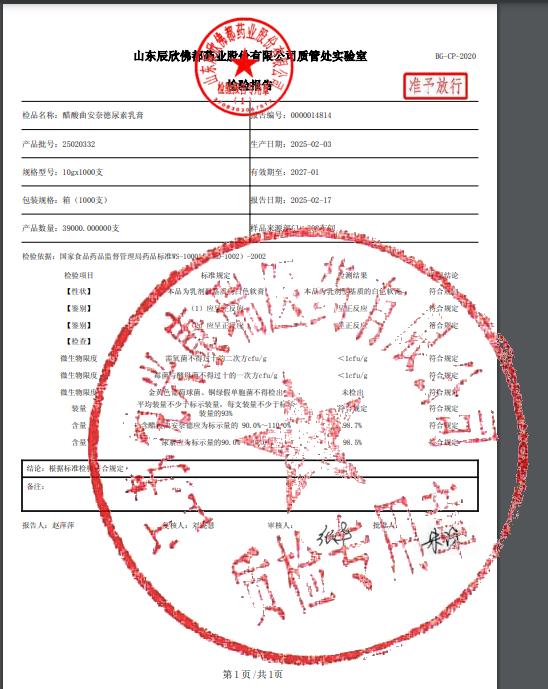 山东辰欣佛都药业股份有限公司质管处实验室
BG-CP-2020
检验报告
准予放行
检品名称: 醋酸曲安奈德尿素乳膏 报告编号: 0000014814
产品批号: 25020332 生产日期: 2025-02-03
规格型号: 10gx1000支 有效期至: 2027-01
包装规格: 箱 (1000支) 报告日期: 2025-02-17
产品数量: 39000.000000支 样品来源部门:
检验依据: 国家食品药品监督管理局药品标准WS-1000 -1002) -2002
检验项目 标准规定 检测结果 结论
【性状】 本品为乳剂型基质的白色软膏 本品为乳剂型基质的白色软膏 符合规定
【鉴别】 (1) 应呈正反应 呈正反应 符合规定
【鉴别】 应呈正反应 呈正反应 符合规定
【检查】
微生物限度 需氧菌不得过十的二次方cfu/g <1cfu/g 符合规定
微生物限度 霉菌与酵母菌不得过十的一次方cfu/g <1cfu/g 符合规定
微生物限度 金黄色葡萄球菌、铜绿假单胞菌不得检出 未检出 符合规定
装量 平均装量不少于标示装量, 每支装量不少于标示装量的93% 符合规定 符合规定
含量 含醋酸曲安奈德应为标示量的 90.0%~110.0% 98.7% 符合规定
含量 尿素应为标示量的90.0% 98.5% 符合规定
结论: 根据标准检验符合规定
备注:
报告人: 赵萍萍 复核人: 审核人: 批准人:
质检专用章
第1页/共1页